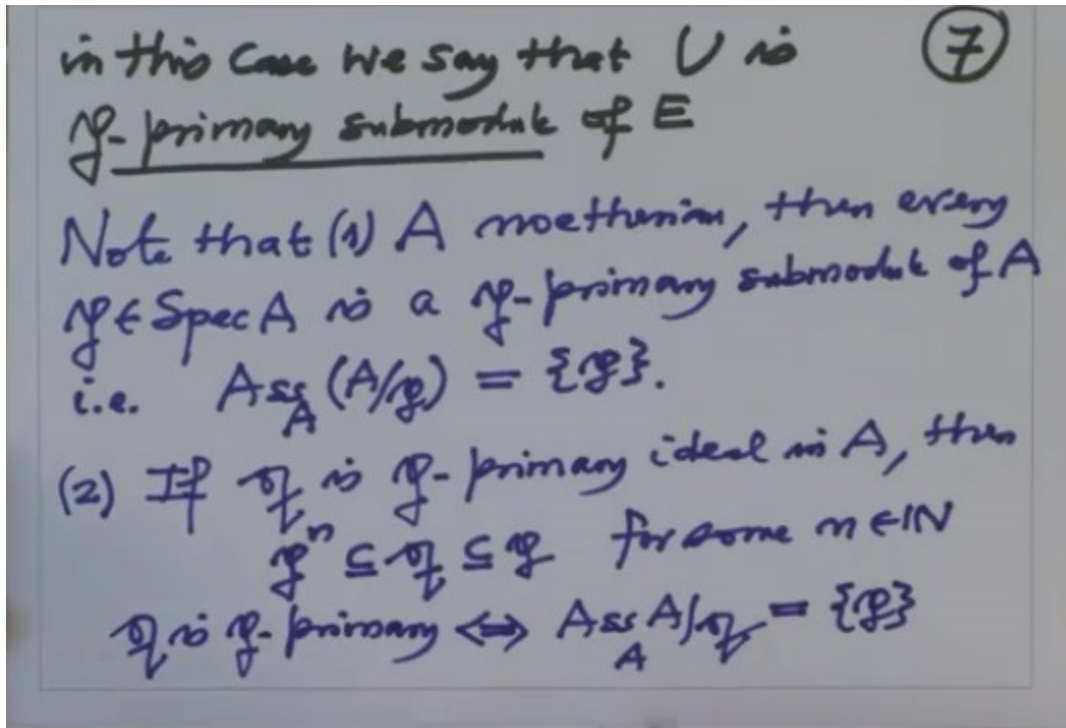 in this Case We say that U is ⑦
𝔭-primary submodule of E
Note that (1) A noetherian, then every
𝔭 ∈ Spec A is a 𝔭-primary submodule of A
i.e. Ass_A (A/𝔭) = {𝔭}.
(2) If 𝔮 is 𝔭-primary ideal in A, then
𝔭ⁿ ⊆ 𝔮 ⊆ 𝔭 for some n ∈ ℕ
𝔮 is 𝔭-primary ⟺ Ass_A A/𝔮 = {𝔭}